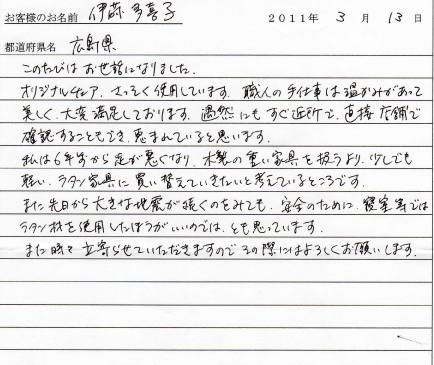 お客様のお名前 伊藤多喜子 2011年 3月 13日
都道府県名 広島県
このたびはお世話になりました。
オリジナルチェア、さっそく使用しています。職人の手仕事は温かみがあって
美しく、大変満足しております。偶然にもすぐ近所で、直接店舗で
確認することもでき、恵まれていると思います。
私は6年前から足が悪くなり、木製の重い家具を扱うより、少しでも
軽い、ラタン家具に買い替えていきたいと考えているところです。
また先日から大きな地震が続くのをみても、安全のために、寝室等では
ラタン材を使用したほうがいいのでは、とも思っています。
また時々立寄らせていただきますのでその際にはよろしくお願いします。